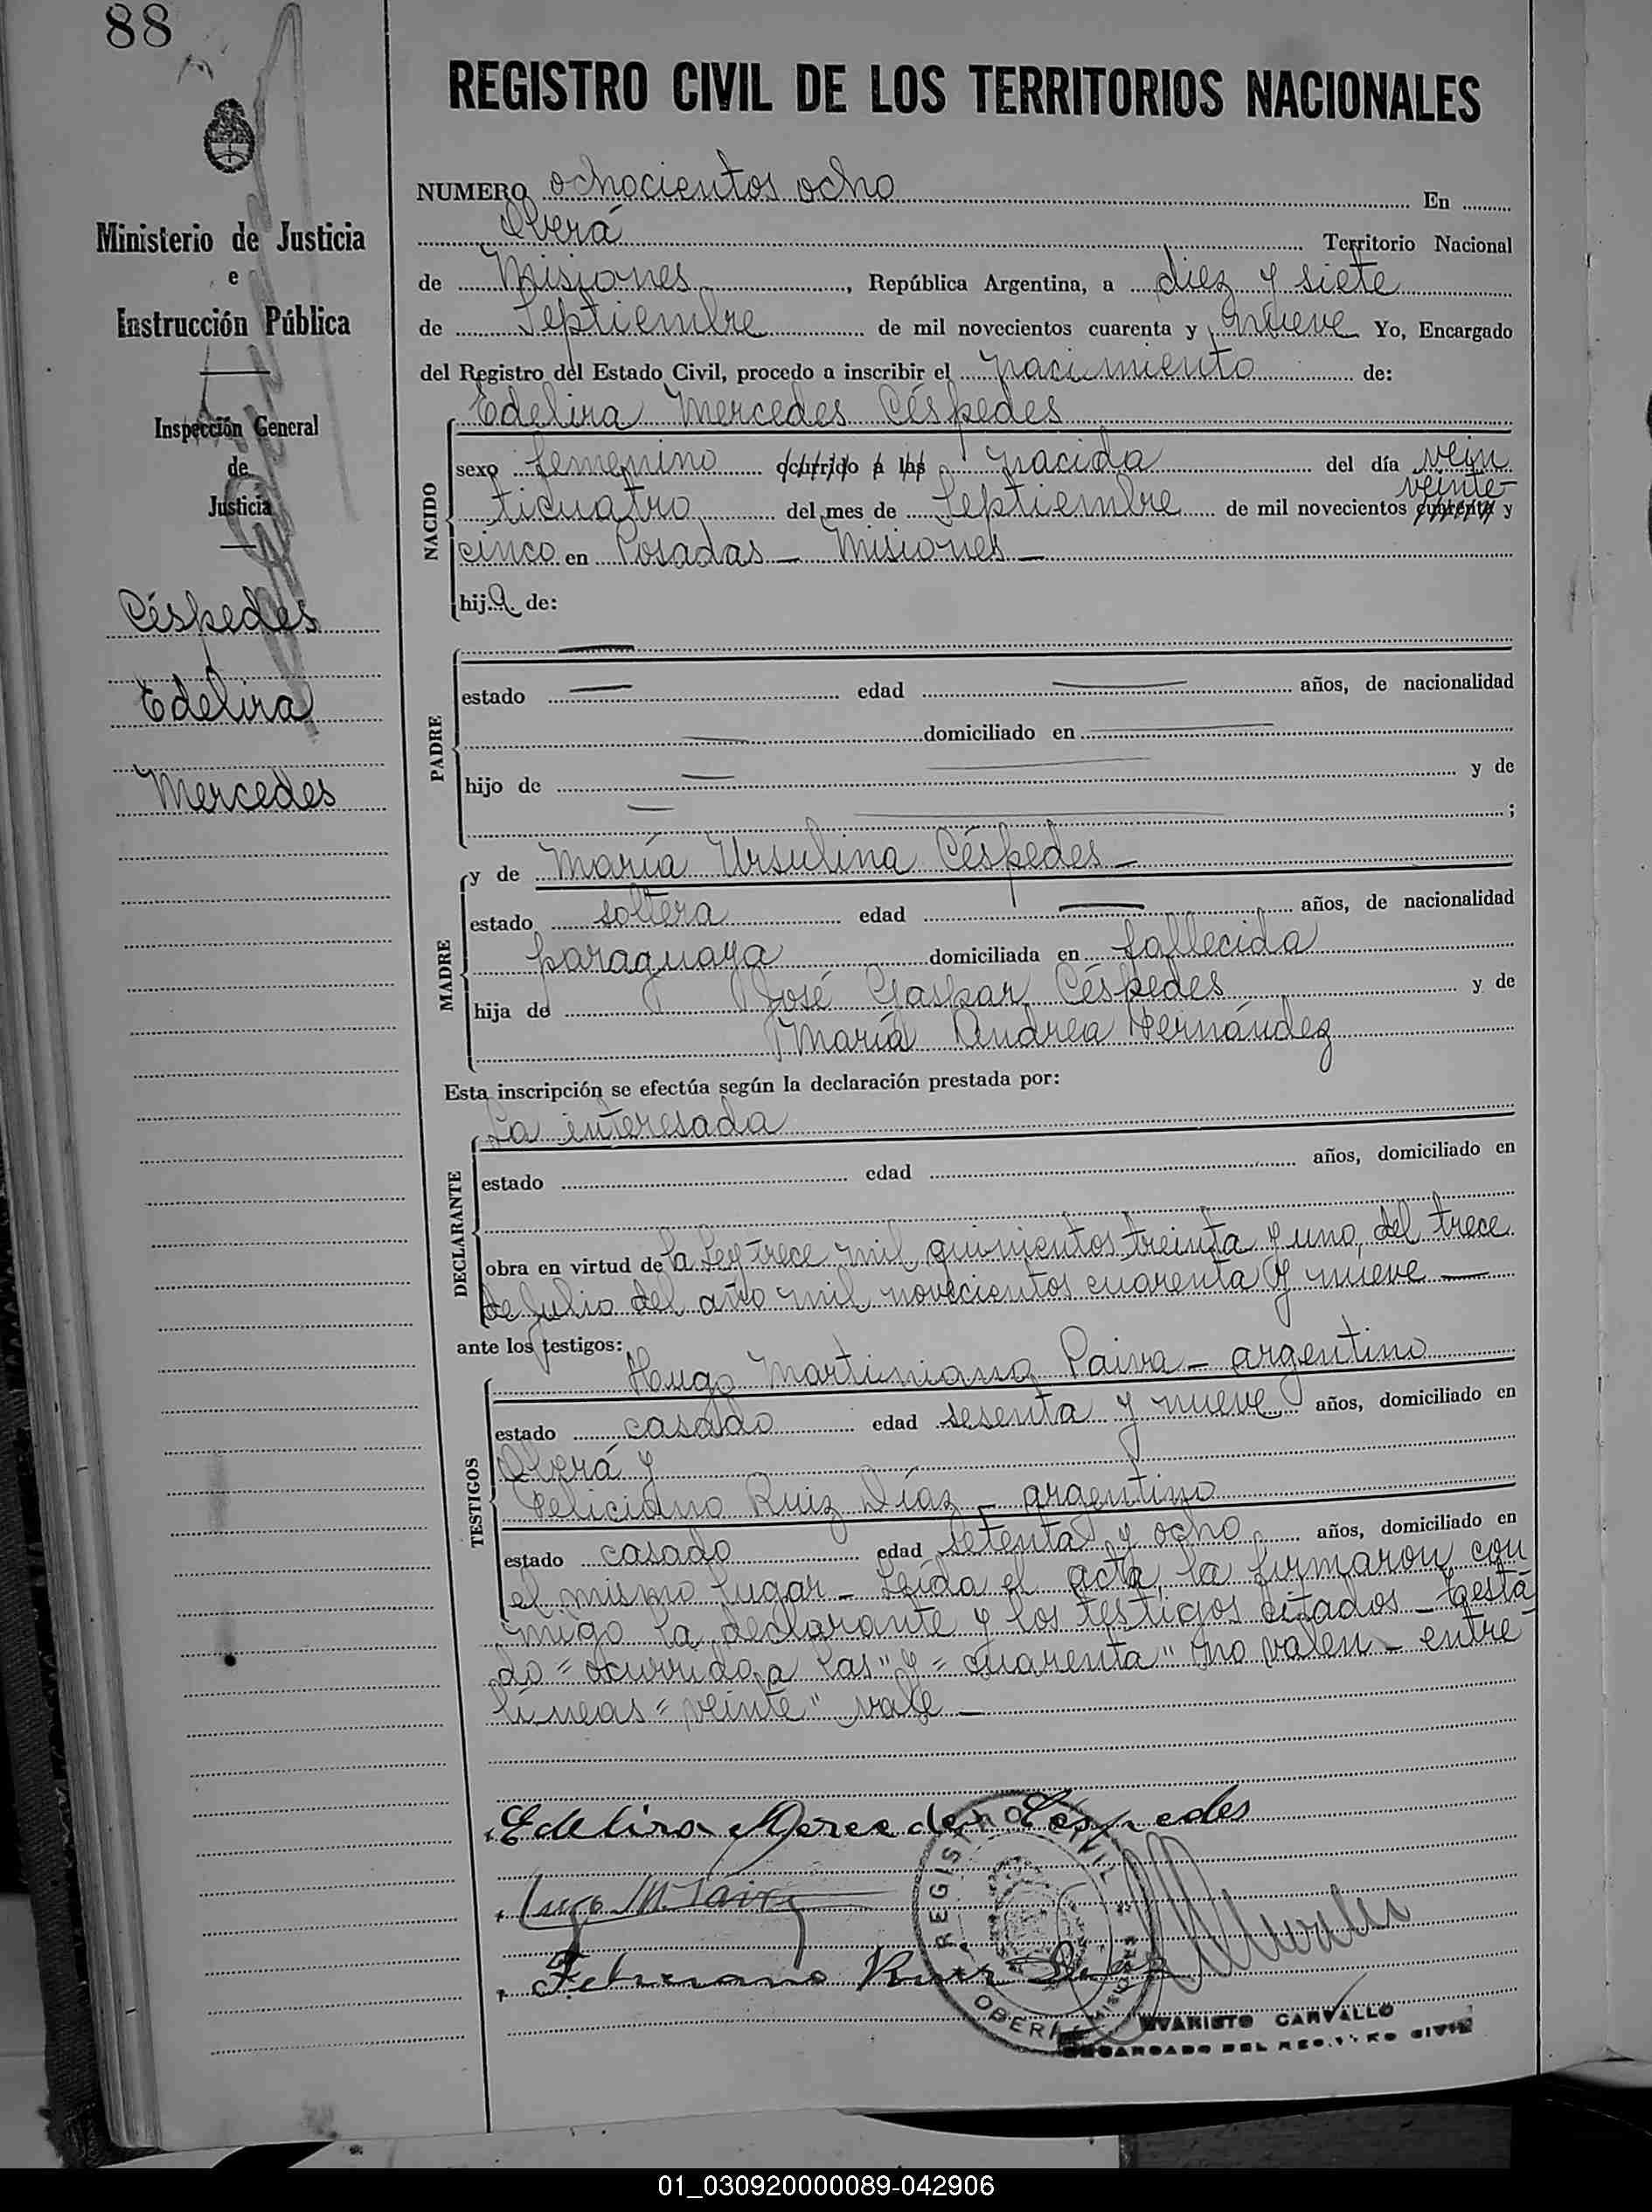 88
REGISTRO CIVIL DE LOS TERRITORIOS NACIONALES
Ministerio de Justicia
e
Instrucción Pública
Inspección General
de
Justicia
Céspedes
Edelira
Mercedes
NUMERO ochocientos ocho En
Oberá Territorio Nacional
de Misiones, República Argentina, a diez y siete
de Septiembre de mil novecientos cuarenta y nueve Yo, Encargado
del Registro del Estado Civil, procedo a inscribir el nacimiento de:
Edelira Mercedes Céspedes
NACIDO
sexo femenino ocurrido a las nacida del día vein
veinte
ticuatro del mes de Septiembre de mil novecientos cuarenta y
cinco en Posadas - Misiones -
hija de:
PADRE
estado edad años, de nacionalidad
domiciliado en
hijo de y de
;
MADRE
y de María Ursulina Céspedes -
estado soltera edad años, de nacionalidad
paraguaya domiciliada en fallecida
hija de José Gaspar Céspedes y de
María Andrea Fernández
Esta inscripción se efectúa según la declaración prestada por:
La interesada
DECLARANTE
estado edad años, domiciliado en
obra en virtud de la Ley trece mil quinientos treinta y uno, del trece
de Julio del año mil novecientos cuarenta y nueve -
ante los testigos:
Hugo Martiniano Paiva - argentino
TESTIGOS
estado casado edad sesenta y nueve años, domiciliado en
Oberá y
Feliciano Ruiz Díaz - argentino
estado casado edad setenta y ocho años, domiciliado en
el mismo lugar - Leída el acta, la firmaron con
migo la declarante y los testigos citados - Testa
do = ocurrido a las" y = cuarenta" no valen - entre
líneas = veinte" vale -
Edelira Mercedes Céspedes
Hugo M. Paiva
Feliciano Ruiz Díaz
REGISTRO CIVIL
OBERÁ MISIONES
EVARISTO CARVALLO
ENCARGADO DEL REGISTRO CIVIL
01_030920000089-042906